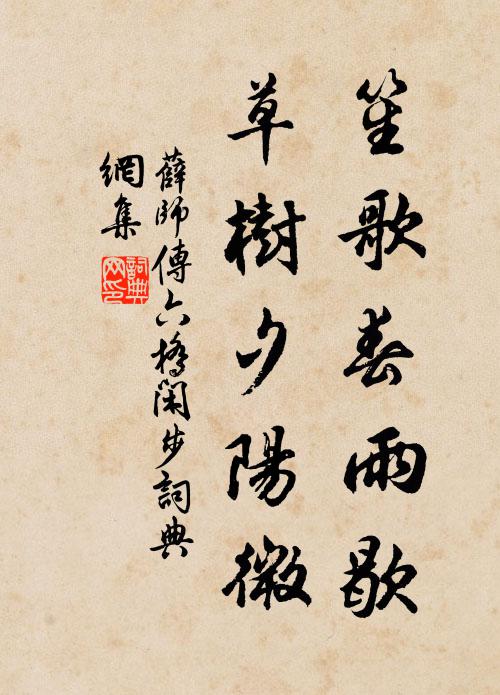 笙歌春雨歇
草樹夕陽微
薛師傳六橋閑步詞典
網集
詞典網印